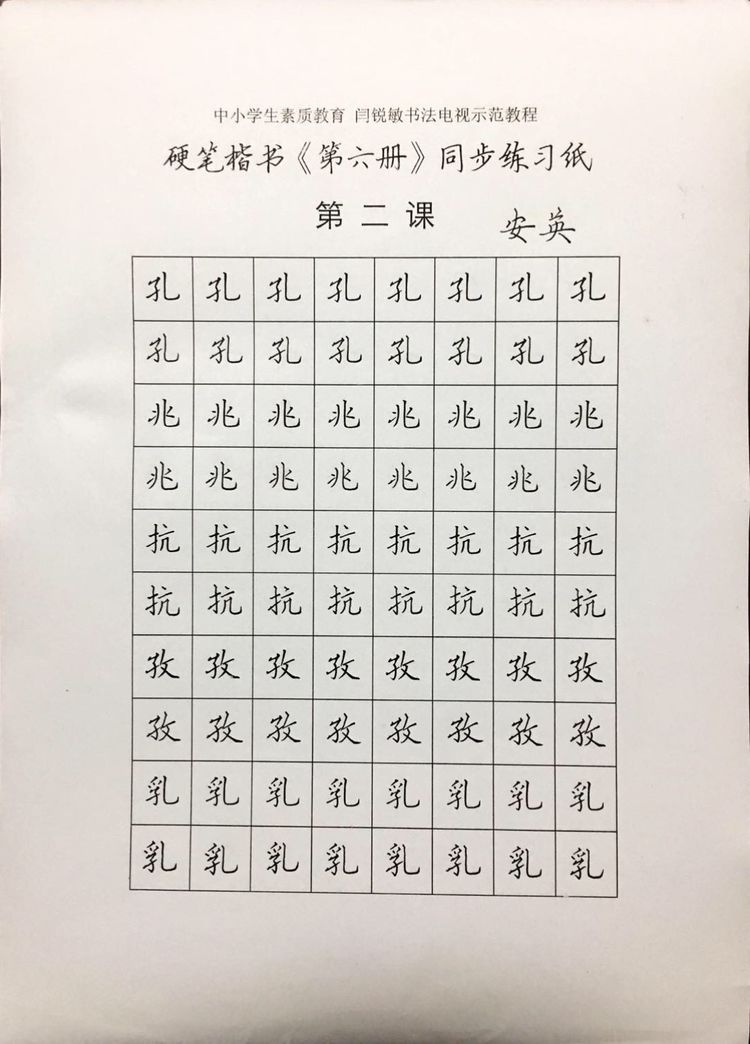 中小学生素质教育 闫锐敏书法电视示范教程
硬笔楷书《第六册》同步练习纸
第二课 安英
孔 孔 孔 孔 孔 孔 孔 孔
孔 孔 孔 孔 孔 孔 孔 孔
兆 兆 兆 兆 兆 兆 兆 兆
兆 兆 兆 兆 兆 兆 兆 兆
抗 抗 抗 抗 抗 抗 抗 抗
抗 抗 抗 抗 抗 抗 抗 抗
孜 孜 孜 孜 孜 孜 孜 孜
孜 孜 孜 孜 孜 孜 孜 孜
乳 乳 乳 乳 乳 乳 乳 乳
乳 乳 乳 乳 乳 乳 乳 乳